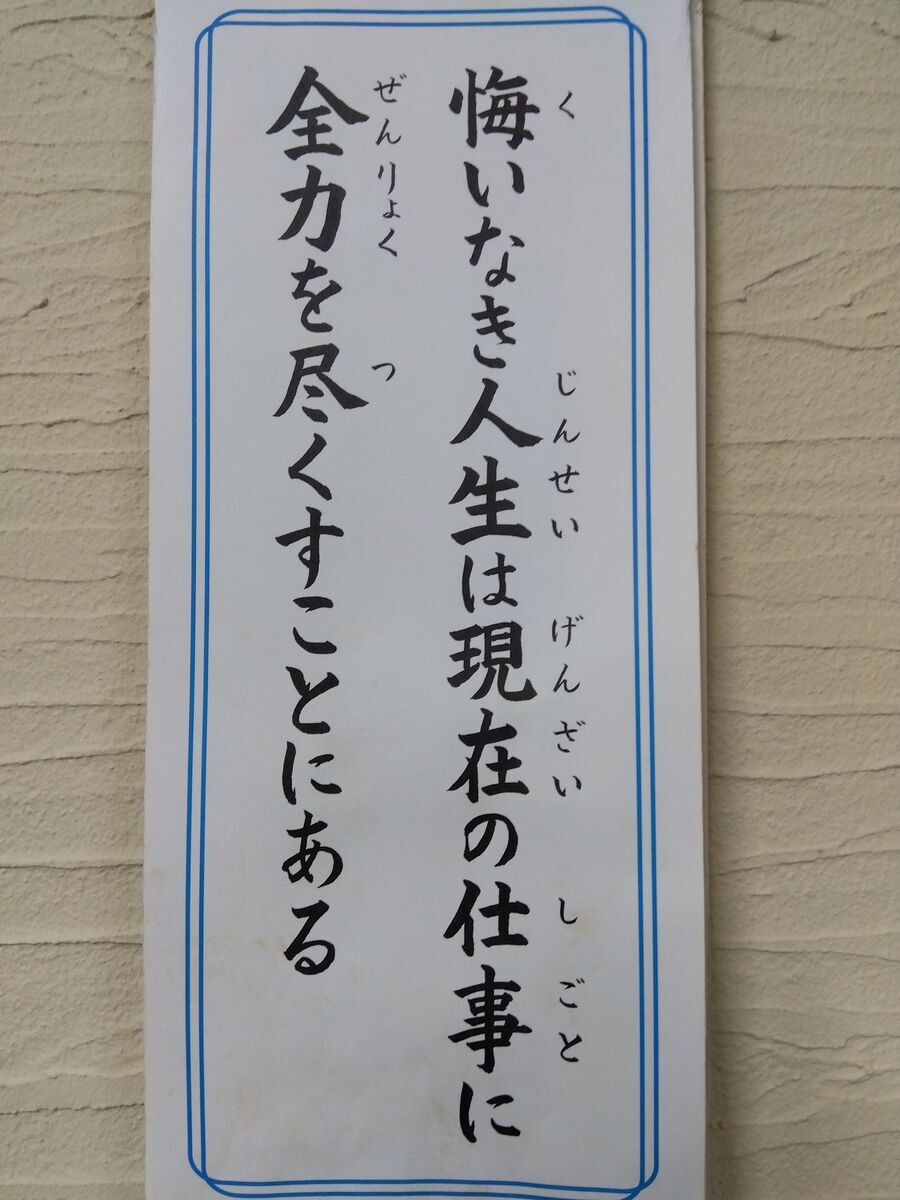 悔いなき人生は現在の仕事に
く じんせい げんざい しごと
全力を尽くすことにある
ぜんりょく つ